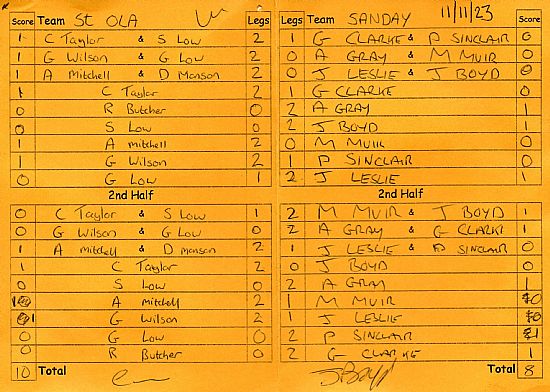 Score Team St OLA Legs Legs Team SANDAY 11/11/23 Score
1 C Taylor & S Low 2 1 G CLARKE & P SINCLAIR 0
1 G Wilson & G Low 2 0 A GRAY & M MUIR 0
1 A Mitchell & D Manson 2 0 J LESLIE & J BOYD 0
1 C Taylor 2 1 G CLARKE 0
0 R Butcher 0 2 A GRAY 1
0 S Low 0 2 J BOYD 1
1 A Mitchell 2 0 M MUIR 0
1 G Wilson 2 1 P SINCLAIR 0
0 G Low 1 2 J LESLIE 1
2nd Half 2nd Half
0 C Taylor & S Low 1 2 M MUIR & J BOYD 1
0 G Wilson & G Low 0 2 A GRAY & G CLARKE 1
1 A Mitchell & D Manson 2 1 J LESLIE & P SINCLAIR 0
1 C Taylor 2 0 J BOYD 0
0 S Low 0 2 A GRAY 1
1 A Mitchell 2 1 M MUIR 0
1 G Wilson 2 1 J LESLIE 0
0 G Low 0 2 P SINCLAIR 1
0 R Butcher 0 2 G CLARKE 1
10 Total J Boyd Total 8